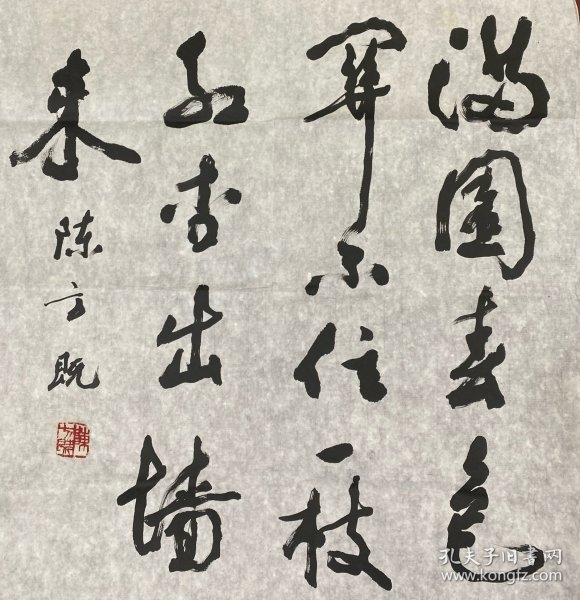 满園春色
關不住一枝
红杏出墙
来
陈方既
孔夫子旧书网
www.kongfz.com